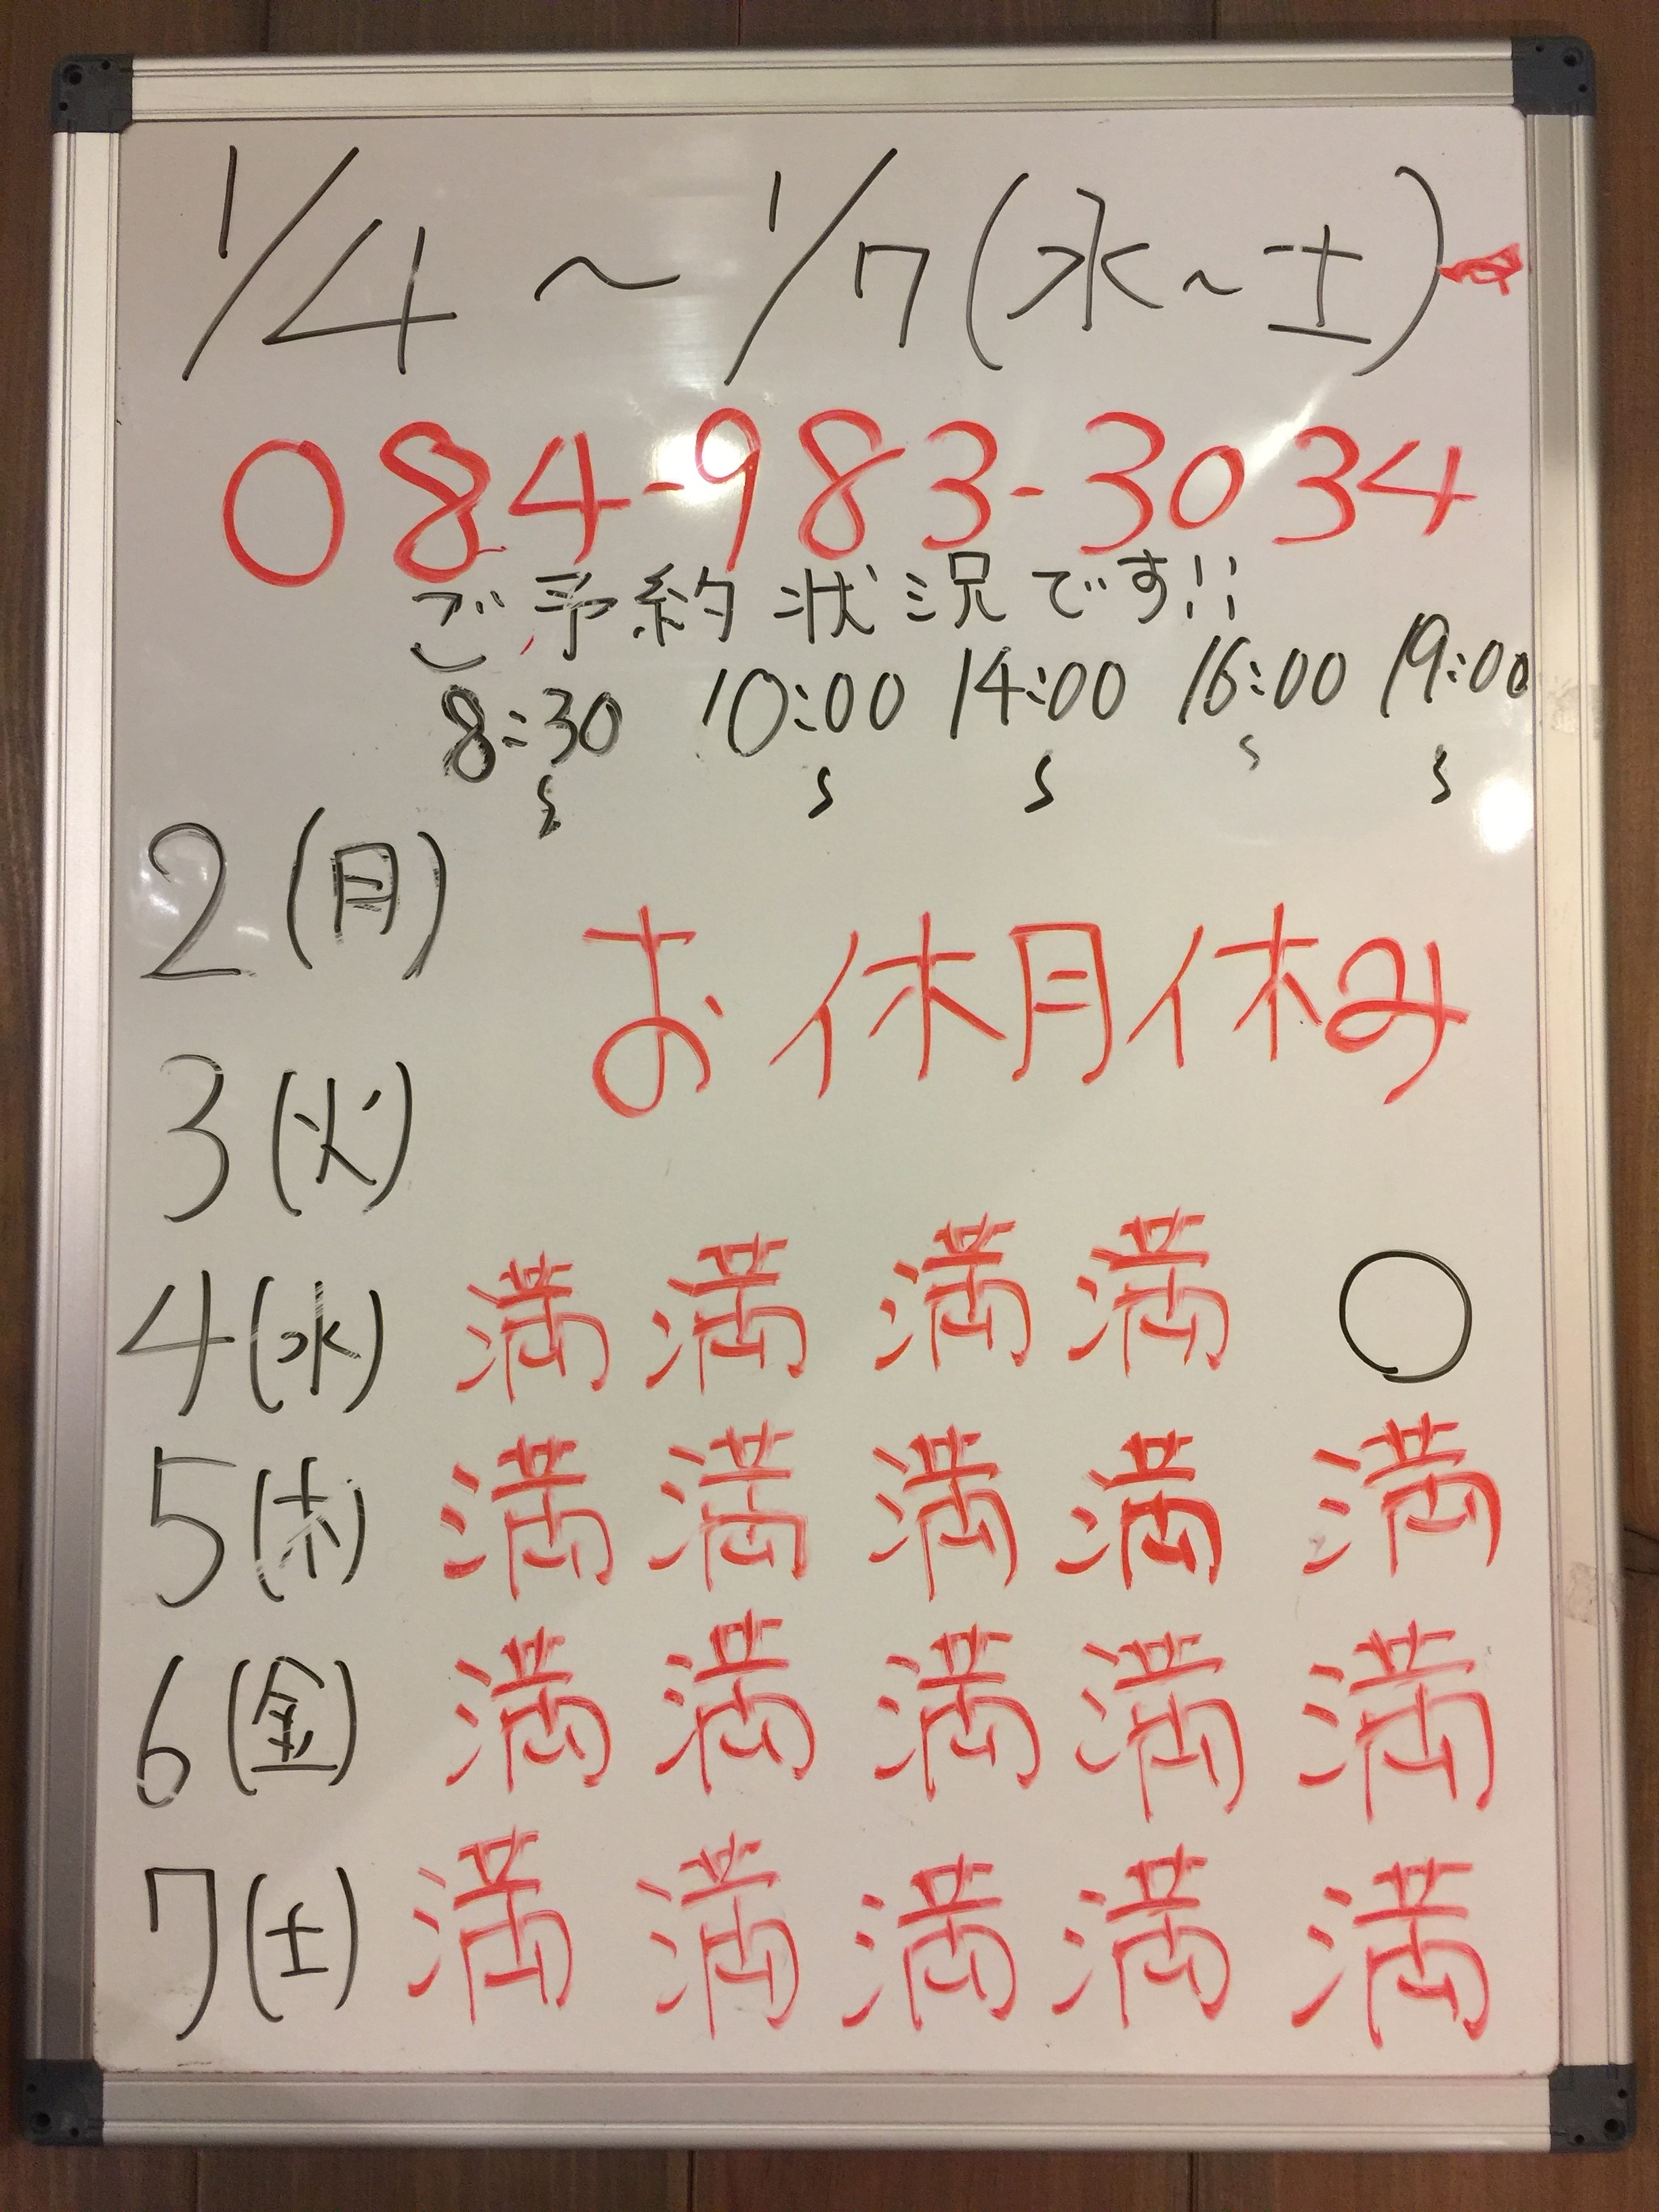 1/4 ～ 1/7 (水～土)
084-983-3034
ご予約状況です!!
8:30 10:00 14:00 16:00 19:00
〜 〜 〜 〜 〜
2(月)
お休月休み
3(火)
4(水) 満 満 満 満 ○
5(木) 満 満 満 満 満
6(金) 満 満 満 満 満
7(土) 満 満 満 満 満